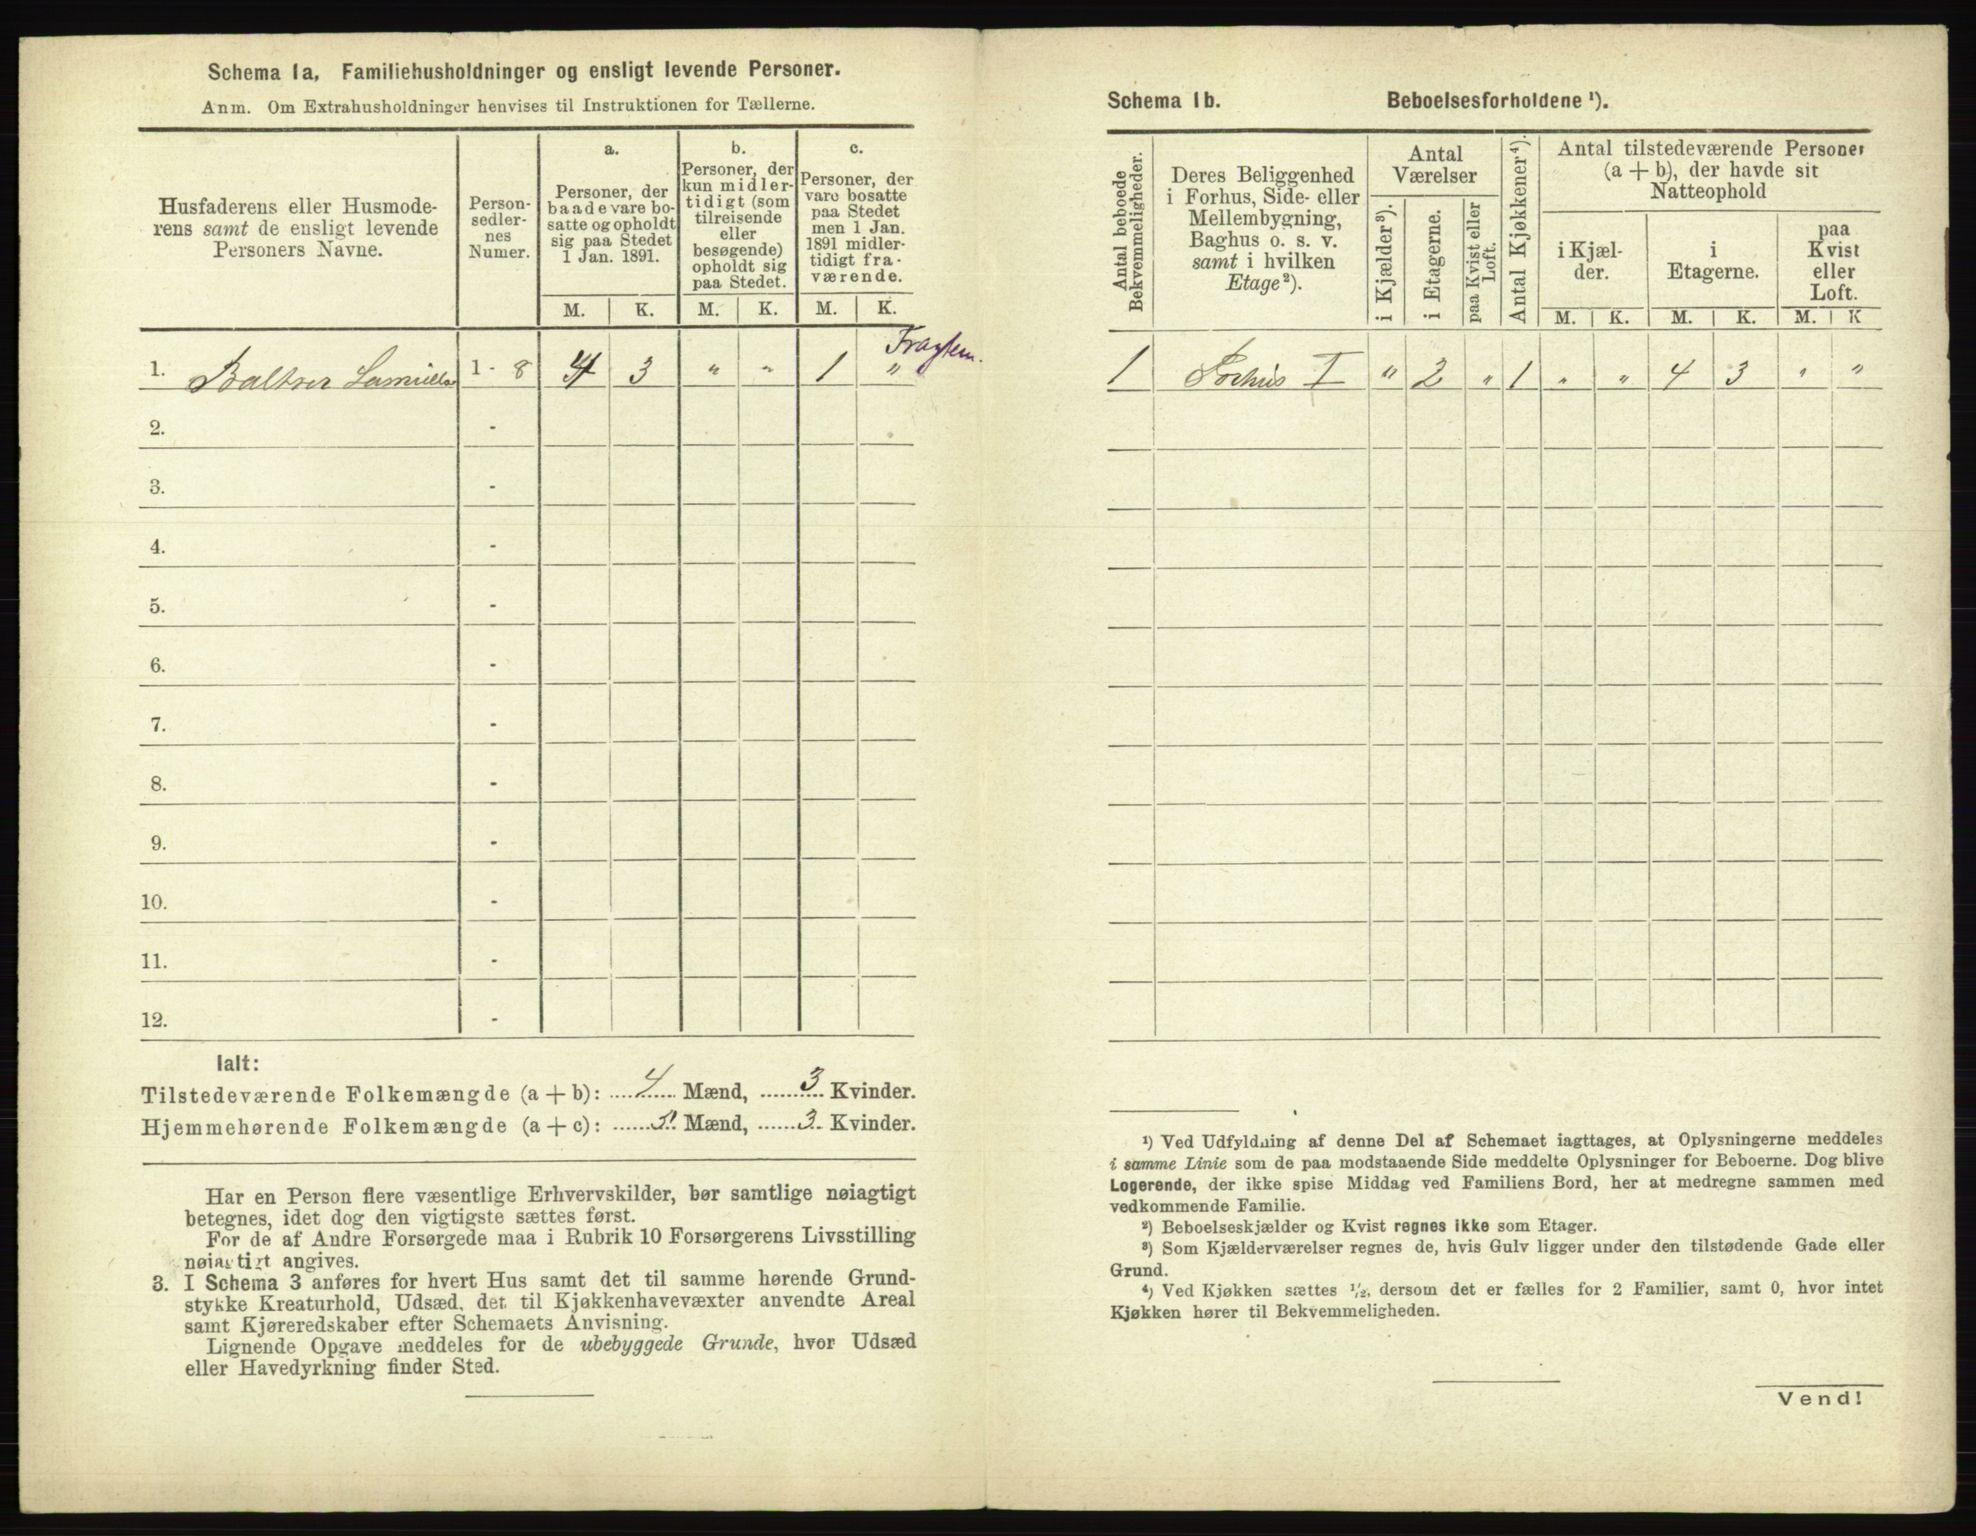 Schema 1a, Familiehusholdninger og ensligt levende Personer.
Anm. Om Extrahusholdninger henvises til Instruktionen for Tællerne.
Husfaderens eller Husmode-
rens samt de ensligt levende
Personers Navne.
Person-
sedler-
nes
Numer.
a.
Personer, der
baade vare bo-
satte og opholdt
sig paa Stedet
1 Jan. 1891.
b.
Personer, der
kun midler-
tidigt (som
tilreisende
eller
besøgende)
opholdt sig
paa Stedet.
c.
Personer, der
vare bosatte
paa Stedet
men 1 Jan.
1891 midler-
tidigt fra-
værende.
M. K. M. K. M. K.
Fragtem.
1. Baltser 1 - 8 4 3 " " 1 "
2. -
3. -
4. -
5. -
6. -
7. -
8. -
9. -
10. -
11. -
12. -
Ialt:
Tilstedeværende Folkemængde (a + b): 4 Mænd, 3 Kvinder.
Hjemmehørende Folkemængde (a + c): Mænd, 3 Kvinder.
Har en Person flere væsentlige Erhvervskilder, bør samtlige nøiagtigt
betegnes, idet dog den vigtigste sættes først.
For de af Andre Forsørgede maa i Rubrik 10 Forsørgerens Livsstilling
nøiagtigt angives.
3. I Schema 3 anføres for hvert Hus samt det til samme hørende Grund-
stykke Kreaturhold, Udsæd, det til Kjøkkenhavevæxter anvendte Areal
samt Kjøreredskaber efter Schemaets Anvisning.
Lignende Opgave meddeles for de ubebyggede Grunde, hvor Udsæd
eller Havedyrkning finder Sted.
Schema 1b. Beboelsesforholdene ¹).
Antal beboede
Bekvemmeligheder.
Deres Beliggenhed
i Forhus, Side- eller
Mellembygning,
Baghus o. s. v.
samt i hvilken
Etage²).
Antal
Værelser
i Kjælder³).
i Etagerne.
paa Kvist eller
Loft.
Antal Kjøkkener⁴).
Antal tilstedeværende Personer
(a + b), der havde sit
Natteophold
i Kjæl-
der.
i
Etagerne.
paa
Kvist
eller
Loft.
M. K. M. K. M. K
1 Forhus I " 2 " 1 " " 4 3 " "
¹) Ved Udfyldning af denne Del af Schemaet iagttages, at Oplysningerne meddeles
i samme Linie som de paa modstaaende Side meddelte Oplysninger for Beboerne. Dog blive
Logerende, der ikke spise Middag ved Familiens Bord, her at medregne sammen med
vedkommende Familie.
²) Beboelseskjælder og Kvist regnes ikke som Etager.
³) Som Kjælderværelser regnes de, hvis Gulv ligger under den tilstødende Gade eller
Grund.
⁴) Ved Kjøkken sættes ½, dersom det er fælles for 2 Familier, samt 0, hvor intet
Kjøkken hører til Bekvemmeligheden.
Vend!